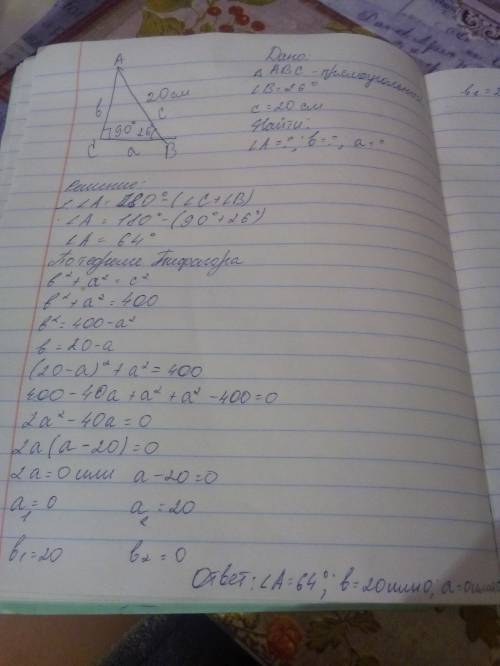 A
в
20 см
c
90° 26°
C
a
B
Дано:
△ ABC - прямоугольный
∠B=26°
c=20 см
Найти:
∠A=?; в=?; a=?
в₂=2
Решение:
∠A=180°-(∠C+∠B)
∠A = 180°-(90°+26°)
∠A = 64°
По теореме Пифагора
в²+a²=c²
в²+a²=400
в²=400-a²
в=20-a
(20-a)²+a²=400
400-40a+a²+a²-400=0
2a²-40a=0
2a(a-20)=0
2a=0 или a-20=0
a₁=0 a₂=20
в₁=20 в₂=0
Ответ: ∠A=64°; в=20или0; a=0или